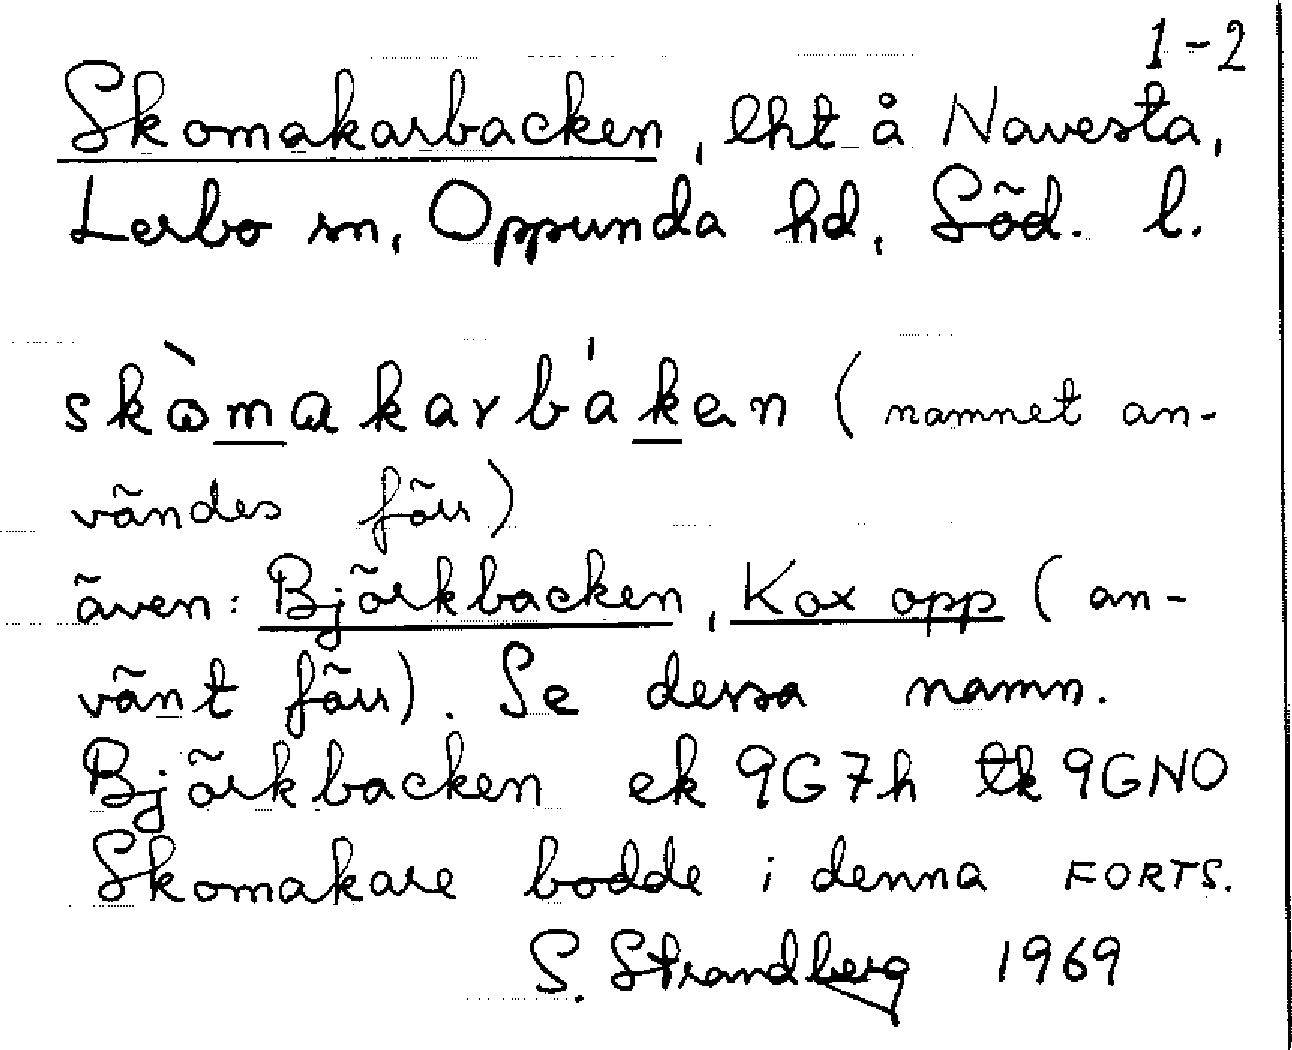 1-2
Skomakarbacken, lht å Navesta,
Lerbo sn, Oppunda hd, Söd. l.
skòmakarbáken (namnet an-
vändes förr)
även: Björkbacken, Kox opp (an-
vänt förr). Se dessa namn.
Björkbacken ek 9G7h tk 9GNO
Skomakare bodde i denna FORTS.
S. Strandberg 1969